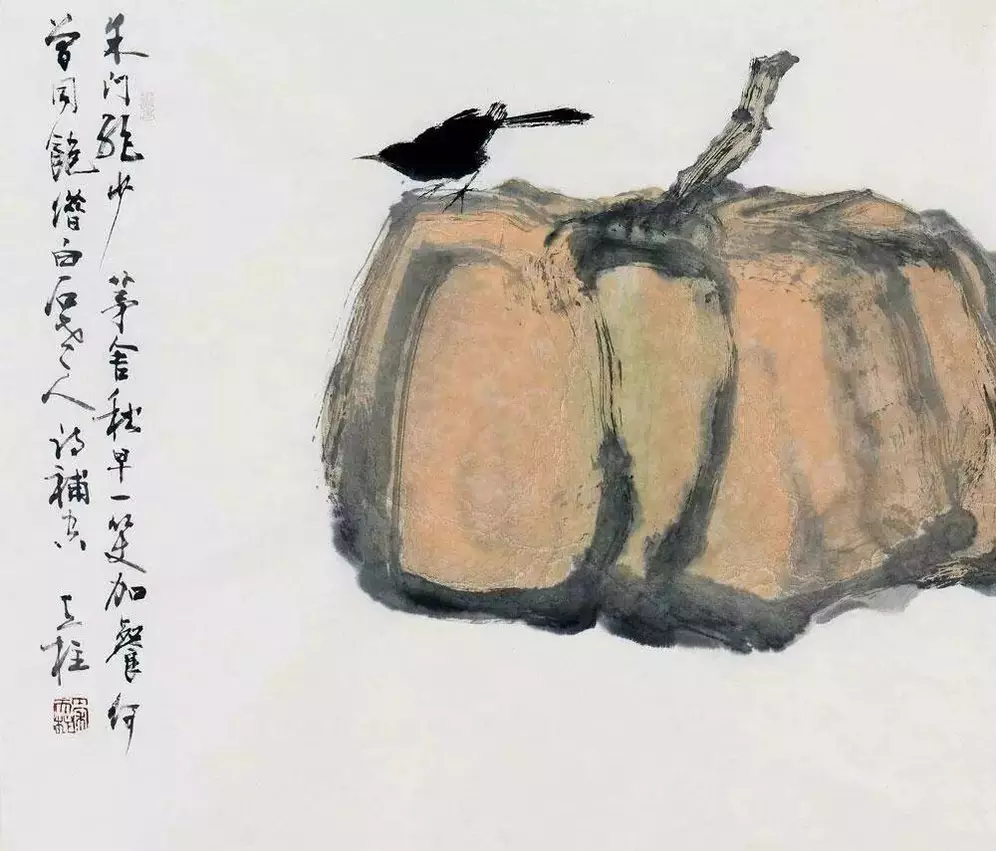 朱门能少 茅舍秋早一笑加餐何
曾同白石老人诗补空 柱